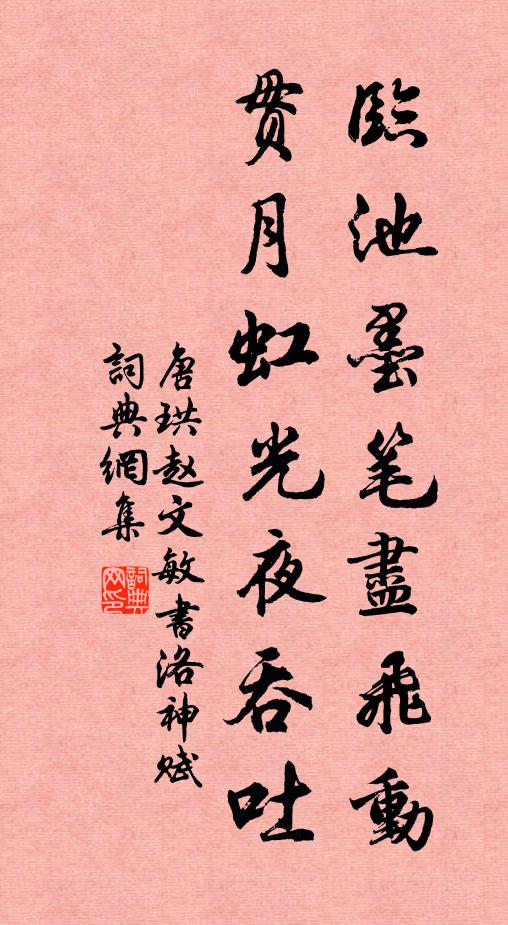 臨池墨笔盡飛動
貫月虹光夜吞吐
唐珙赵文敏書洛神賦
詞典網集
詞典网印